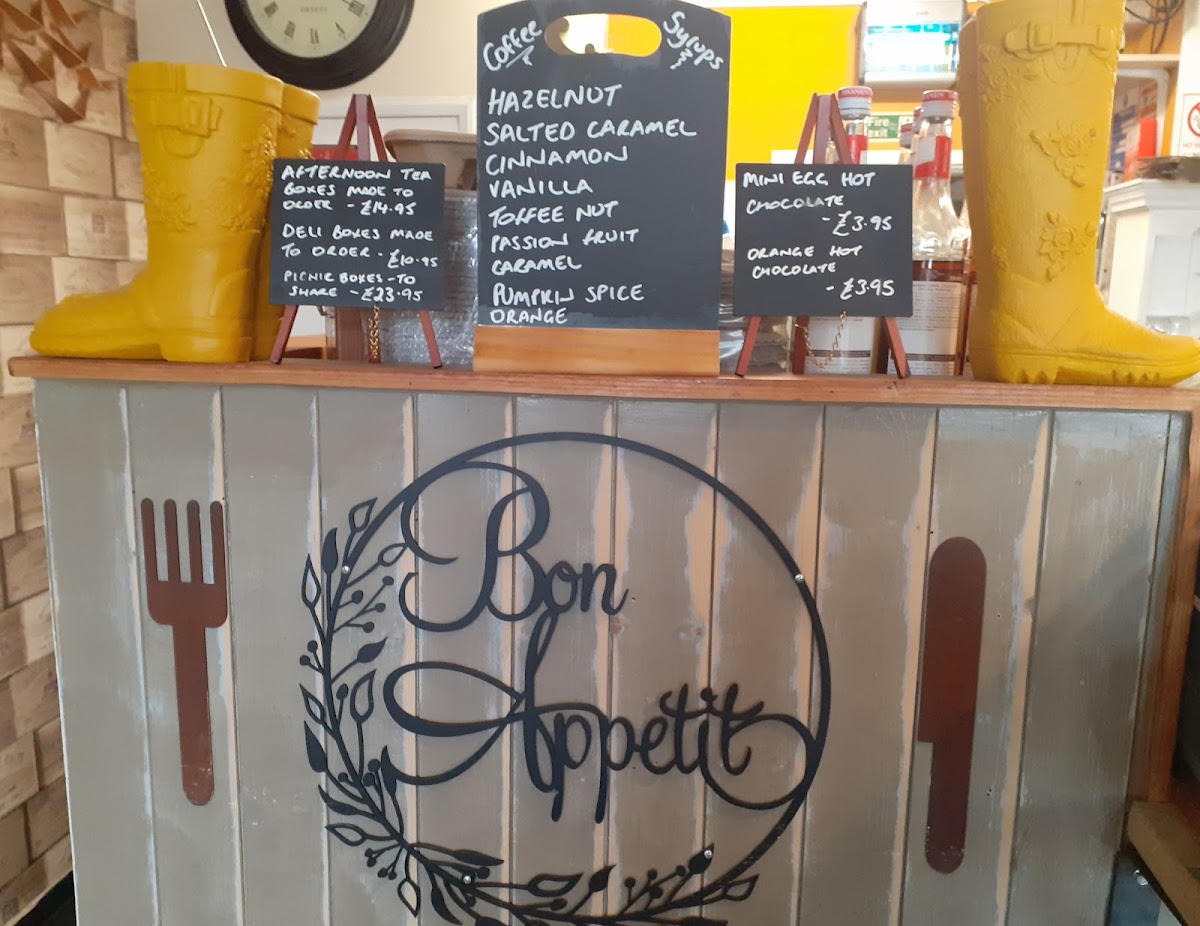 Coffee Syrups
HAZELNUT
SALTED CARAMEL
CINNAMON
VANILLA
TOFFEE NUT
PASSION FRUIT
CARAMEL
PUMPKIN SPICE
ORANGE
AFTERNOON TEA
BOXES MADE TO
ORDER - £14.95
DELI BOXES MADE
TO ORDER - £10.95
PICNIC BOXES - TO
SHARE - £23.95
MINI EGG HOT
CHOCOLATE
- £3.95
ORANGE HOT
CHOCOLATE
- £3.95
Fire
exit
Bon
Appetit